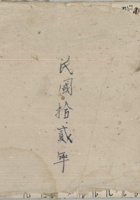 民國拾貳年